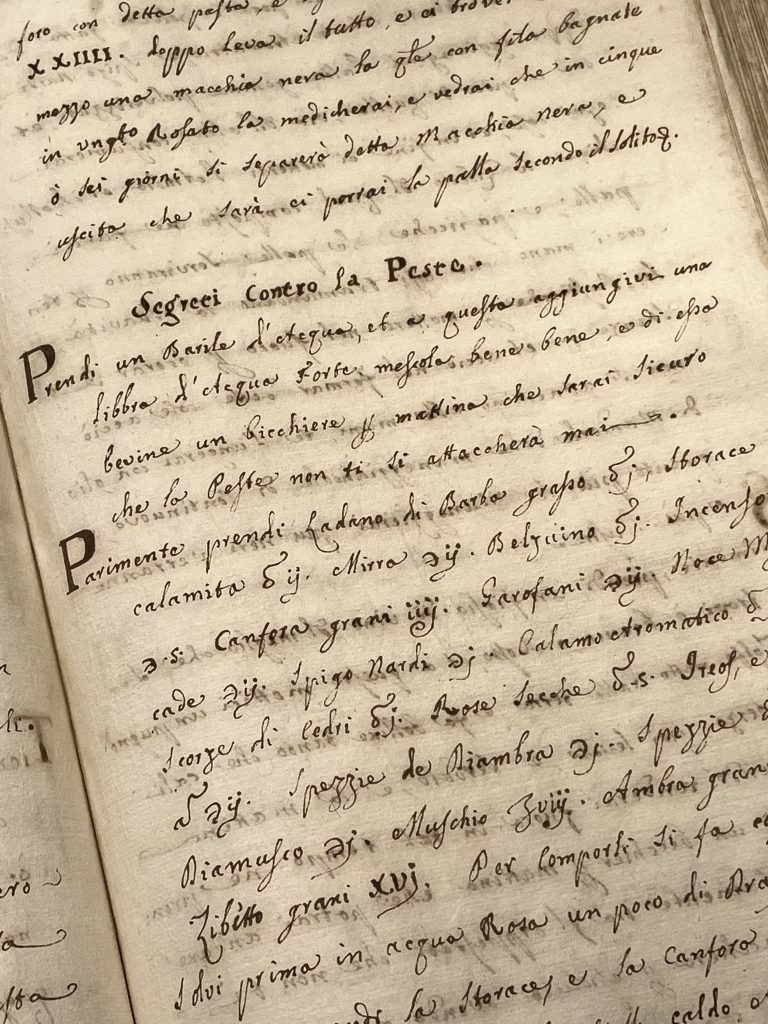 foro con detta pasta, e
XXIIII. doppo leva il tutto, e ci trover
mezzo una macchia nera la qle con fila bagnate
in ungto Rosato la medicherai, e vedrai che in cinque
ò sei giorni si separerà detta Macchia nera, e
uscita che sarà ci porrai la palla secondo il solito.
Segreti Contro la Peste.
Prendi un Barile d'Acqua, et a questa aggiungivi una
libbra d'Acqua Forte mescola bene bene, e di essa
bevine un bicchiere mattina che sarai sicuro
che la Peste non ti si attaccherà mai.
Parimente prendi Ladano di Barba grasso ʒj, Storace
calamita ʒij. Mirra ℈ij. Belzuino ʒj. Incenso
℈.s. Canfora grani iiij. Garofani ℈ij. Noce M
cade ℈ij. Spigo Nardi ℈j. Calamo Aromatico
Scorze di Cedri ʒj. Rose Secche ʒ.s. Ireos, e
℈ij. Spezzie de Diambra ℈j. Spezzie
Diamusco ℈j. Muschio viij. Ambra gran
Zibetto grani XVj. Per Comporli si fa
solvi prima in acqua Rosa un poco di Dra
la Storace, e la Canfora
caldo,
li.
ero
la
sta